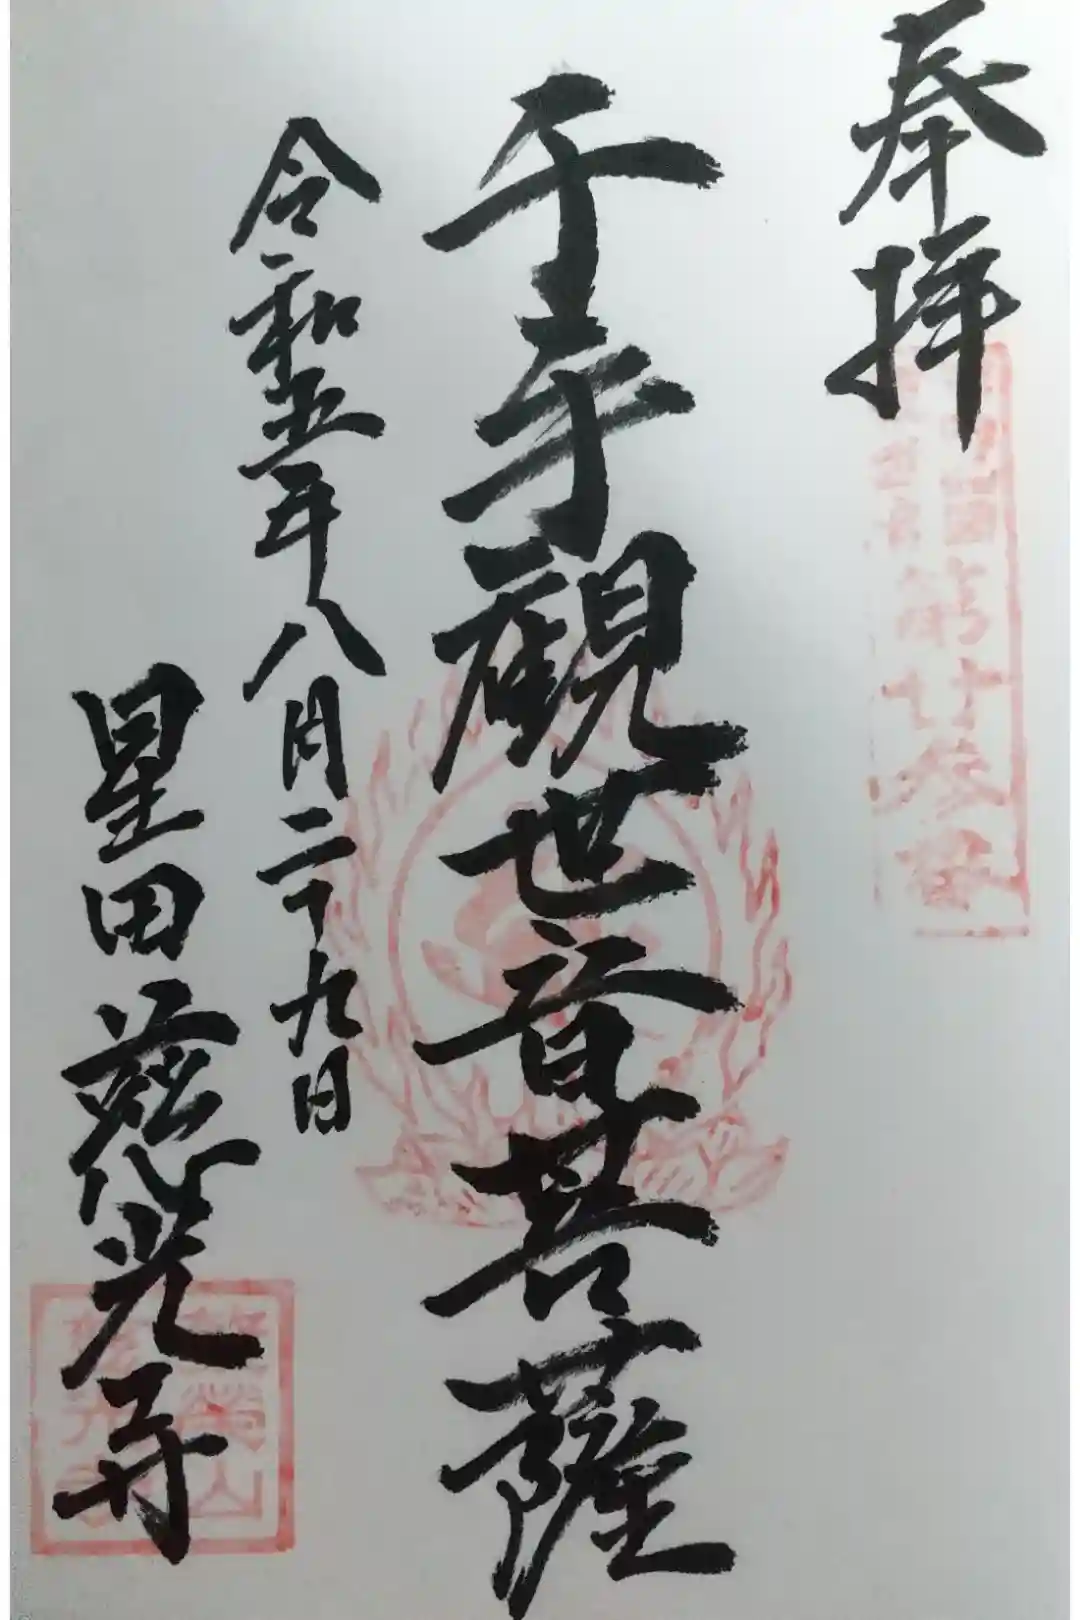 奉拝
第廿参番
千手観世音菩薩
令和五年八月二十九日
星田慈光寺